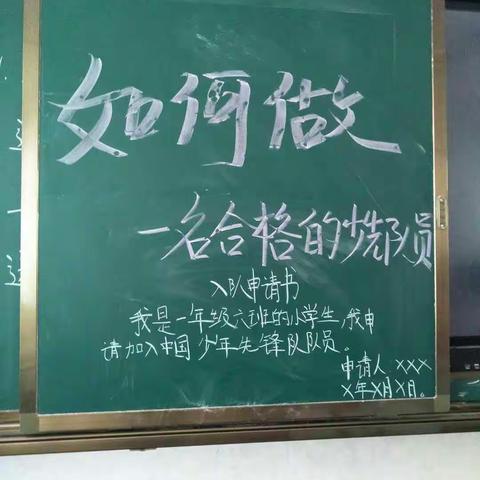 如何做
一名合格的少先队员
入队申请书
我是一年级六班的小学生,我申
请加入中国少年先锋队队员。
申请人 XXX
X年X月X日。